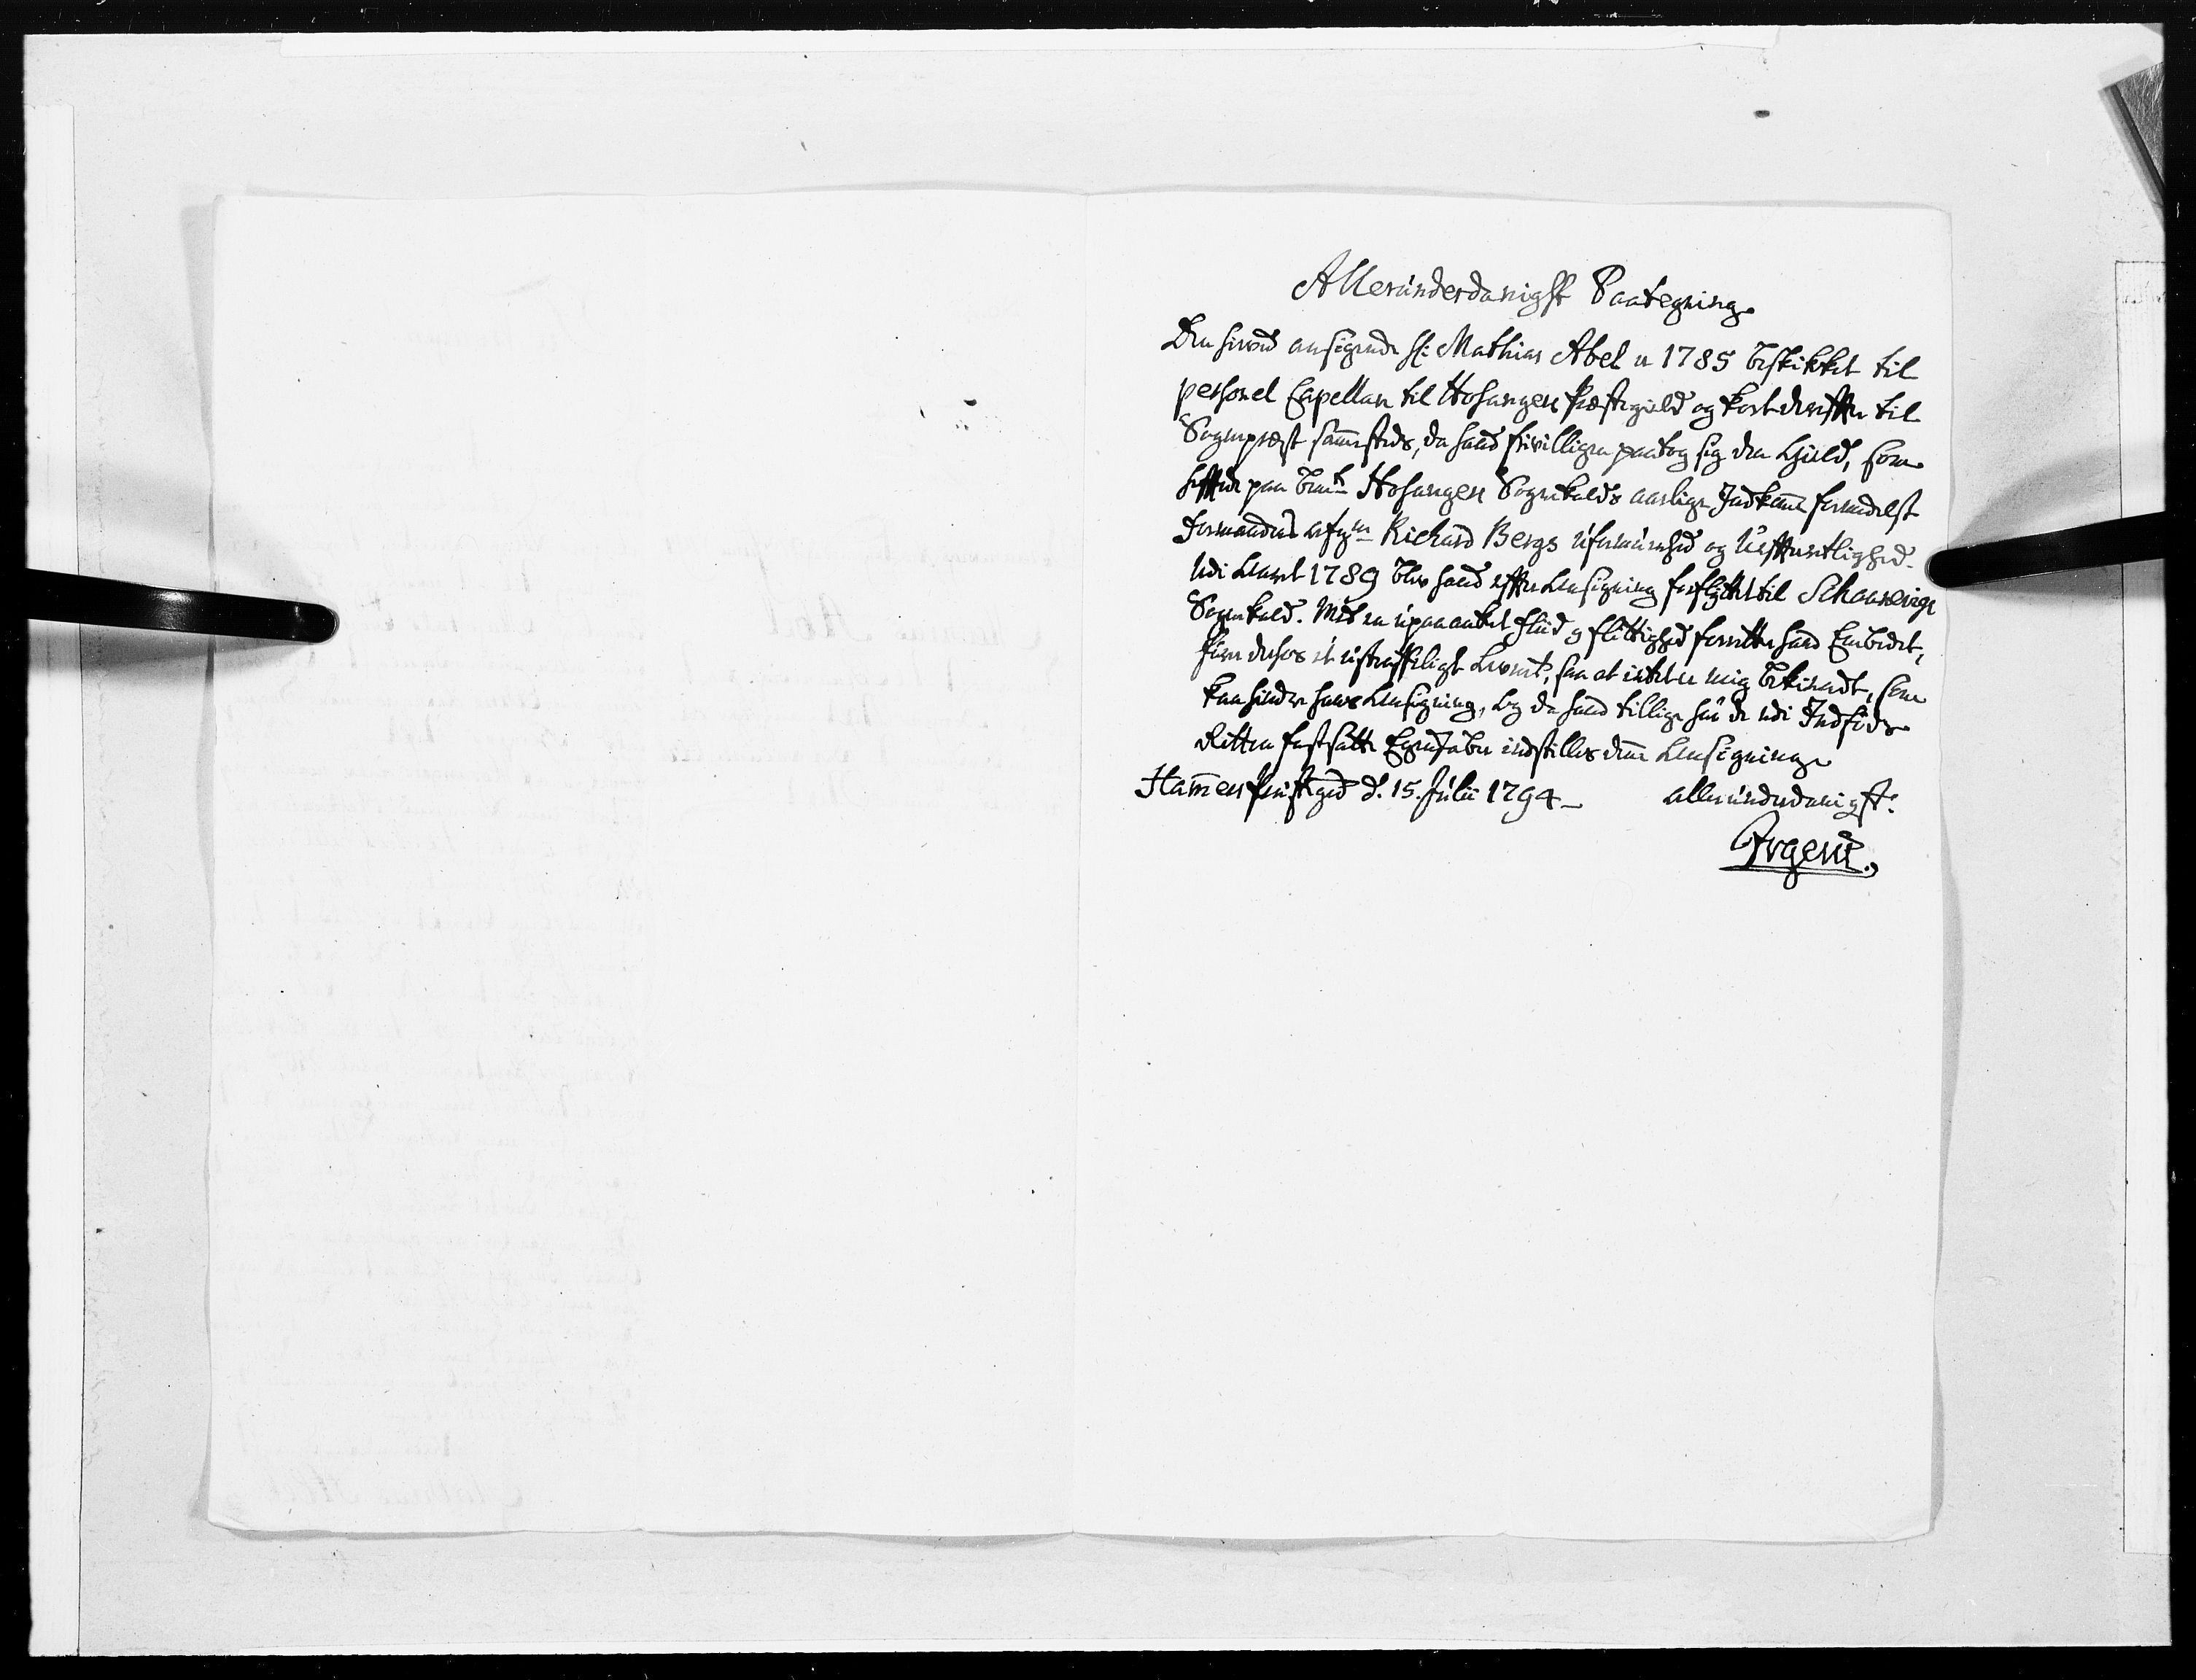 Allerúnderdanigst Paategning.
Den herved ansøgende Hr: Mathias Abel er 1785 beskikket til
personel Capellan til Hosanger Præstegield og kort derefter til
Sognepræst sam̅esteds, da hand frivilligen paatog sig den Giæld, som
heftede paa bem:te Hosanger Sognekalds aarlige Indkom̅e formedelst
Formandens Richard Bergs úformúenhed og Úefterretlighed.
Udi Aaret 1789 blev hand efter Ansøgning forflyttet til Schonevigs
Sognekald. Med en úpaaanket Fliid og flittighed forretter hand Embedet,
fører derhos et ústraffeligt Levnet, saa at intet er mig bekiendt, som
kan hindre hans Ansøgning, og da hand tillige har de udi Indføds
Retten fastsatte Egenskaber indstilles den̅e Ansøgning
Ham̅ers Præstegrd d. 15. Júlii 1794 — allerúnderdanigst.
Irgens.